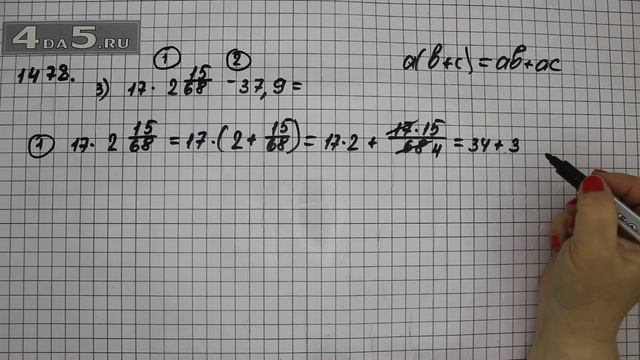 4DA5.RU
1478.
① ②
3) 17 · 2 15/68 - 37,9 =
a(b+c) = ab+ac
① 17 · 2 15/68 = 17 · (2 + 15/68) = 17 · 2 + 17 · 15/68 4 = 34 + 3